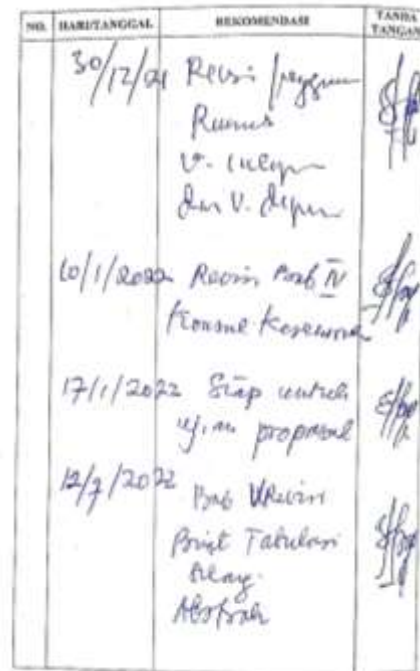 NO. HARI/TANGGAL REKOMENDASI TANDA TANGAN
30/12/21 Revisi
Rumus
V.
dan V. depen
10/1/2022 Revisi Bab IV
Konsul
17/1/2022 Siap untuk
ujian proposal
12/7/2022 Bab V Revisi
Print Tabulasi
Abstrak